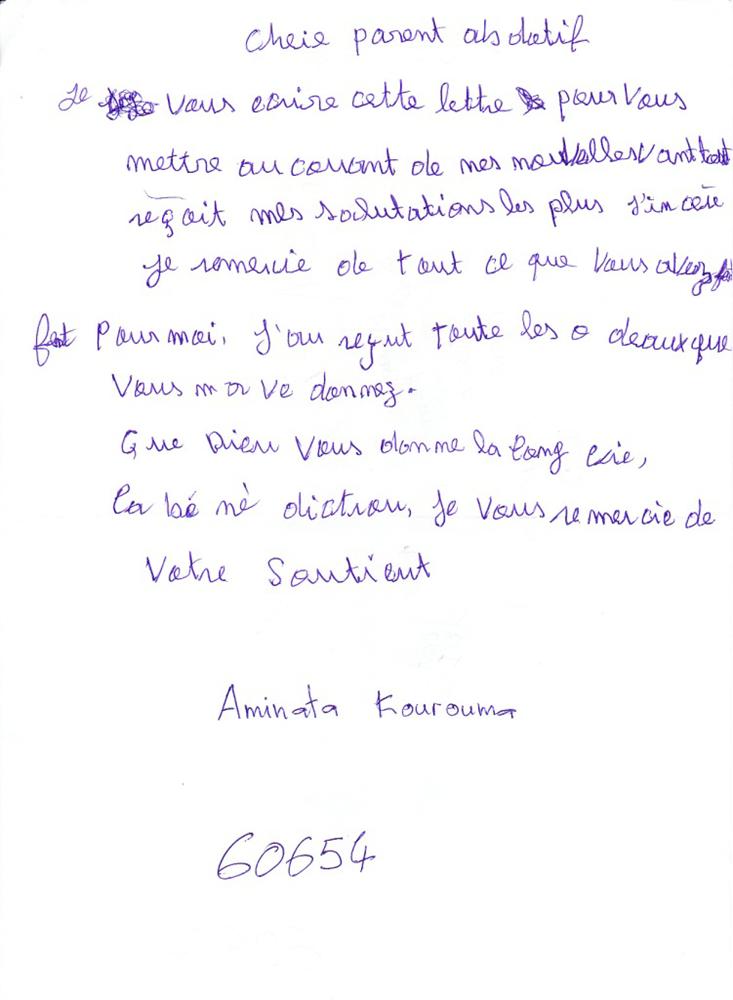 Cheie parent abdotif
Je vous ecrire cette lettre pour vous
mettre au courant de mes nouvelles vant tout
reçoit mes salutations les plus s'in cère
je remercie de tout ce que vous avez
fait pour moi. J'ai reçut toute les o deaux que
vous m'a ve donnez.
Que Dieu vous donne la long vie,
la bé nè diction, Je vous remercie de
votre Soutient
Aminata Kourouma
60654